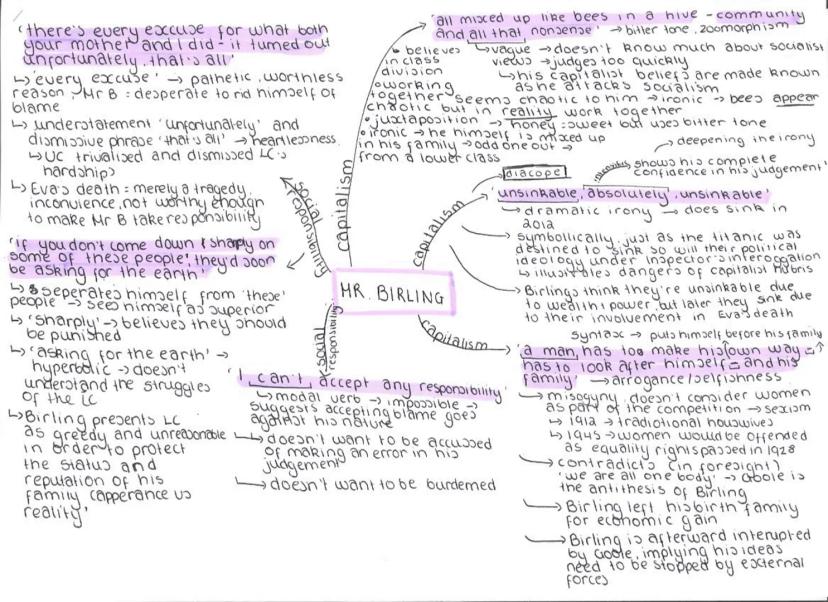 'there's every excuse for what both
your mother and I did - it turned out
unfortunately, that's all'
↳ 'every excuse' → pathetic, worthless
reason, Mr B = desperate to rid himself of
blame
↳ understatement 'unfortunately' and
dismissive phrase 'that's all' → heartlessness
↳ UC trivialised and dismissed LC's
hardships
↳ Eva's death = merely a tragedy,
inconvience, not worthy enough
to make Mr B take responsibility
'if you don't come down sharply on
some of these people, they'd soon
be asking for the earth'
↳ seperates himself from 'these'
people → sees himself as superior
↳ 'sharply' → believes they should
be punished
↳ 'asking for the earth' →
hyperbolic → doesn't
understand the struggles
of the LC
↳ Birling presents LC
as greedy and unreasonable
in order to protect
the status and
reputation of his
family (apperance vs
reality'
social
responsibility
capitalism
capitalism
MR. BIRLING
capitalism
social
responsibility
'all mixed up like bees in a hive - community
and all that nonsense' → bitter tone, zoomorphism
↳ vague → doesn't know much about socialist
views → judges too quickly
↳ his capitalist beliefs are made known
as he attacks socialism
• believes
in class
division
• working
together seems chaotic to him → ironic → bees appear
chaotic but in reality work together
• juxtaposition → honey = sweet but uses bitter tone
• ironic → he himself is mixed up
in his family → odd one out →
from a lower class
diacope
deepening the irony
shows his complete
confidence in his judgement
'unsinkable, absolutely, unsinkable'
↳ dramatic irony → does sink in
2012
symbollically, just as the titanic was
destined to sink so will their political
ideology under Inspector's interogation
↳ illustrates dangers of capitalist hubris
Birlings think they're unsinkable due
to wealth & power, but later they sink due
to their involvement in Eva's death
syntax → puts himself before his family
'a man, has too make his own way -
has to look after himself - and his
family' → arrogance/selfishness
misogyny, doesn't consider women
as part of the competition → sexism
↳ 1912 → tradtional housewives
↳ 1945 → women would be offended
as equality rights passed in 1928
contradicts (in foresight)
'we are all one body' → Goole is
the antithesis of Birling
Birling left his birth family
for economic gain
Birling is afterward interupted
by Goole, implying his ideas
need to be stopped by external
forces
'I can't, accept any responsibility'
↳ modal verb → impossible →
suggests accepting blame goes
against his nature
doesn't want to be accused
of making an error in his
judgement
doesn't want to be burdened